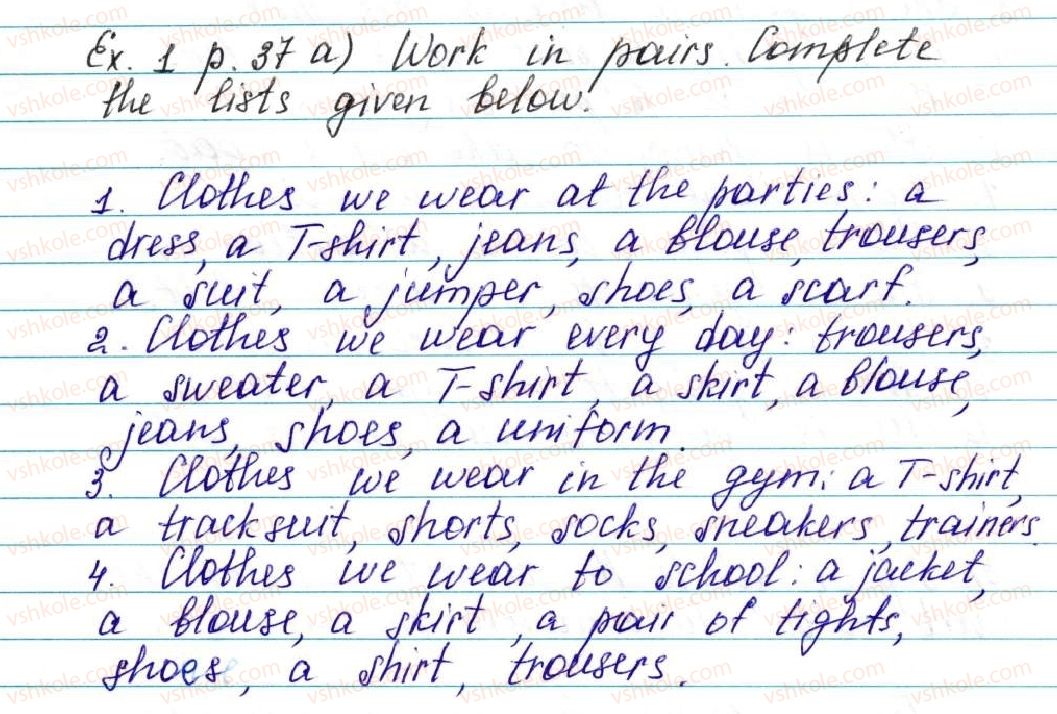 Ex. 1 p. 37 a) Work in pairs. Complete
the lists given below.
1. Clothes we wear at the parties: a
dress, a T-shirt, jeans, a blouse, trousers,
a suit, a jumper, shoes, a scarf.
2. Clothes we wear every day: trousers,
a sweater, a T-shirt, a skirt, a blouse,
jeans, shoes, a uniform.
3. Clothes we wear in the gym: a T-shirt,
a tracksuit, shorts, socks, sneakers, trainers.
4. Clothes we wear to school: a jacket,
a blouse, a skirt, a pair of tights,
shoes, a shirt, trousers.